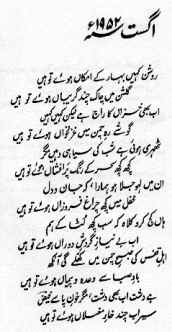 اگست ۱۹۵۲ء
روشن کہیں بہار کے امکاں ہوئے تو ہیں
گلشن میں چاک چند گریباں ہوئے تو ہیں
اب بھی خزاں کا راج ہے لیکن کہیں کہیں
گوشے رہِ چمن میں غزلخواں ہوئے تو ہیں
ٹھہری ہوئی ہے شب کی سیاہی وہیں مگر
کچھ کچھ سحر کے رنگ پرافشاں ہوئے تو ہیں
ان میں لہو جلا ہو ہمارا، کہ جان و دل
محفل میں کچھ چراغ فروزاں ہوئے تو ہیں
ہاں کج کرو کلاہ کہ سب کچھ لٹا کے ہم
اب بے نیازِ گردشِ دوراں ہوئے تو ہیں
اہلِ قفس کی صبحِ چمن میں کھلے گی آنکھ
بادِ صبا سے وعدہ و پیماں ہوئے تو ہیں
ہے دشت اب بھی دشت، مگر خونِ پا سے فیض
سیراب چند خارِ مغیلاں ہوئے تو ہیں